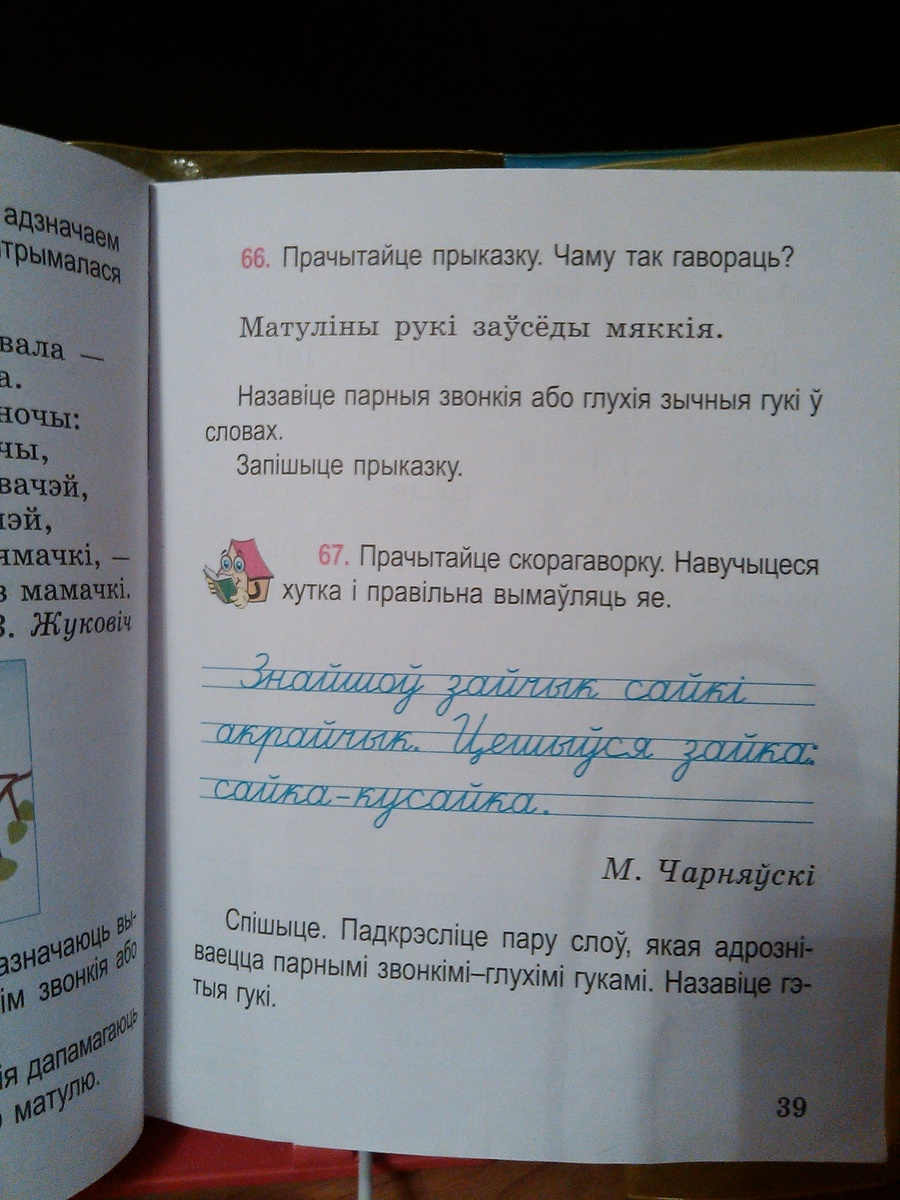 адзначаем
трымалася
вала —
а.
ночы:
чы,
вачэй,
эй,
ямачкі, —
з мамачкі.
В. Жуковіч
азначаюць вы-
ім звонкія або
ія дапамагаюць
матулю.
66. Прачытайце прыказку. Чаму так гавораць?
Матуліны рукі заўсёды мяккія.
Назавіце парныя звонкія або глухія зычныя гукі ў
словах.
Запішыце прыказку.
67. Прачытайце скорагаворку. Навучыцеся
хутка і правільна вымаўляць яе.
Знайшоў зайчык сайкі
акрайчык. Цешыўся зайка:
сайка-кусайка.
М. Чарняўскі
Спішыце. Падкрэсліце пару слоў, якая адрозні-
ваецца парнымі звонкімі–глухімі гукамі. Назавіце гэ-
тыя гукі.
39